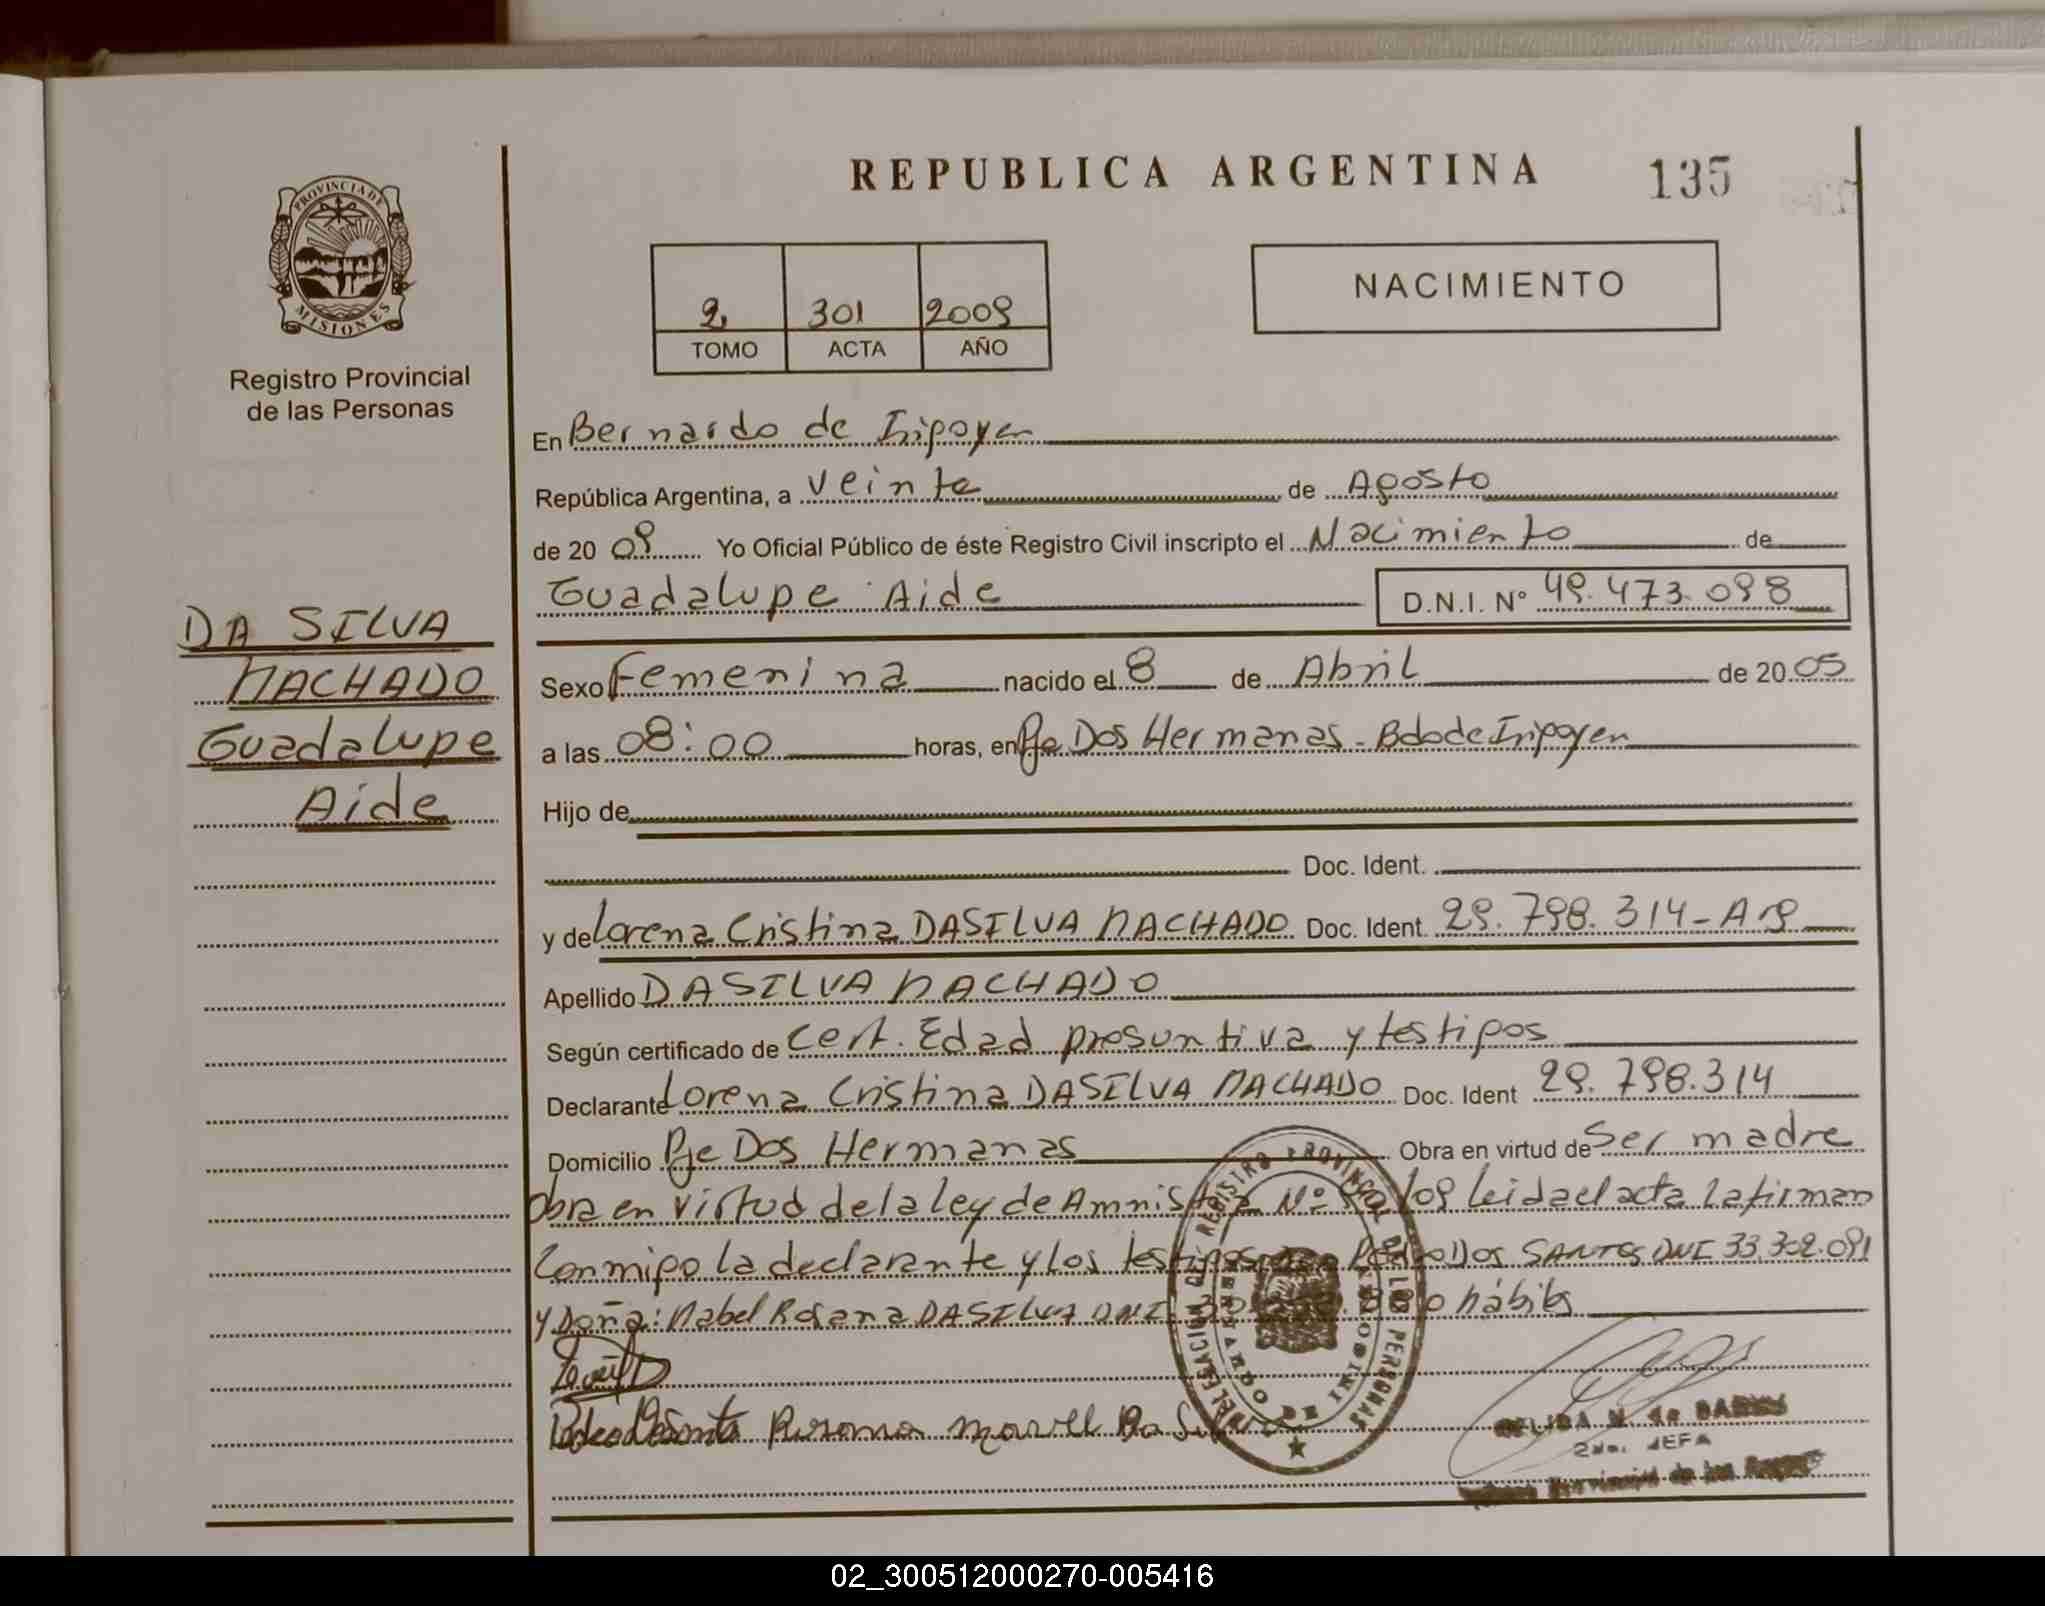 REPUBLICA ARGENTINA 135
PROVINCIA DE
MISIONES
Registro Provincial
de las Personas
2 301 2009
TOMO ACTA AÑO
NACIMIENTO
En Bernardo de Iripoyen
República Argentina, a veinte de Agosto
de 20 09 Yo Oficial Público de éste Registro Civil inscripto el Nacimiento de
Guadalupe Aide D.N.I. N° 49.473.098
DA SILVA
MACHADO
Guadalupe
Aide
Sexo Femenina nacido el 8 de Abril de 20 05
a las 08:00 horas, en Pje Dos Hermanas - Bdo de Iripoyen
Hijo de
Doc. Ident.
y de Lorena Cristina DASILVA MACHADO Doc. Ident. 29.798.314-Arg
Apellido DASILVA MACHADO
Según certificado de Cert. Edad presuntiva y testigos
Declarante Lorena Cristina DASILVA MACHADO Doc. Ident 29.798.314
Domicilio Pje Dos Hermanas Obra en virtud de Ser madre
Obra en virtud de la ley de Amnistia Nº leida el acta la firman
Conmigo la declarante y los testigos Dos SANTOS DNI 33.302.091
y Doña: Mabel Rosana DASILVA DNI hábiles
REGISTRO PROVINCIAL DE LAS PERSONAS
DELEGACION
BERNARDO DE IRIGOYEN
Rosana Mavel Da
2da. JEFA
02_300512000270-005416